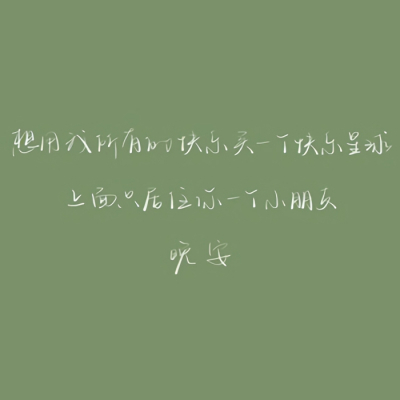 想用我所有的快乐买一个快乐星球
上面只居住你一个小朋友
晚安